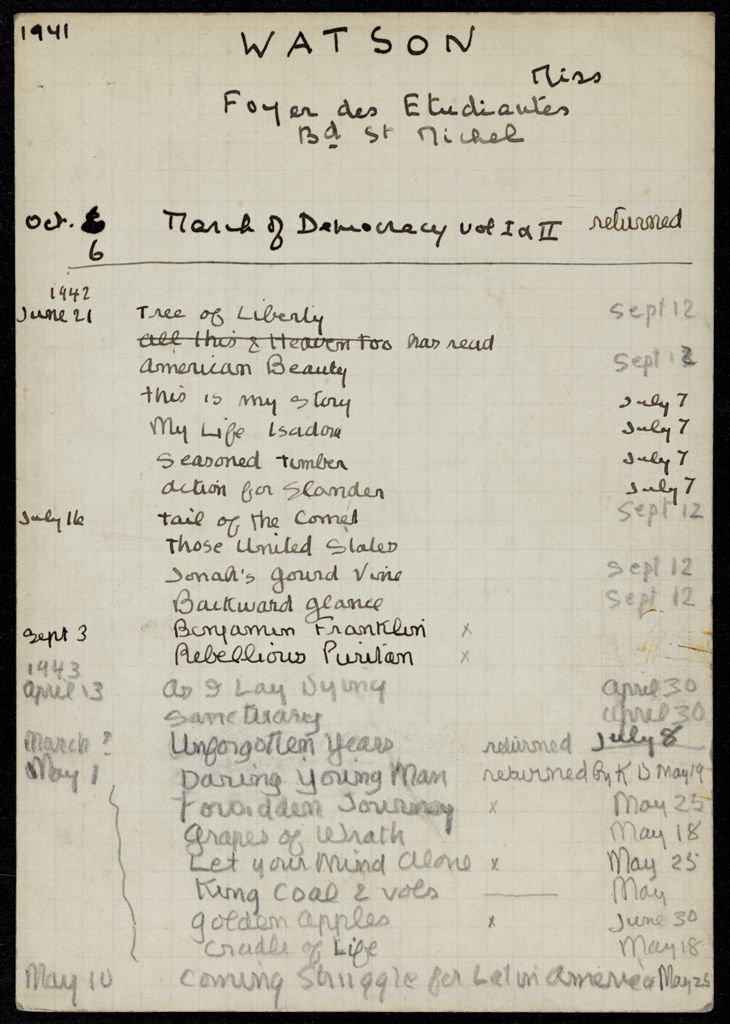 1941
WATSON
Miss
Foyer des Etudiantes
Bd St Michel
Oct. 6 March of Democracy vol I & II returned
6
1942
June 21 Tree of Liberty Sept 12
all this & Heaven too has read
American Beauty Sept 12
this is my story July 7
My Life Isadora July 7
Seasoned Timber July 7
action for Slander July 7
July 16 tail of the Comet Sept 12
Those United States
Jonah's gourd Vine Sept 12
Backward glance Sept 12
Sept 3 Benjamin Franklin x
Rebellious Puritan x
1943
April 13 As I Lay Dying april 30
Sanctuary april 30
March ? Unforgotten Years returned July 8
May 1 Daring Young Man returned by K D May 19
Forbidden Journey x May 25
Grapes of Wrath May 18
Let your Mind Alone x May 25
King Coal 2 vols — May
golden apples x June 30
Cradle of Life May 18
May 10 Coming Struggle for Latin America May 25